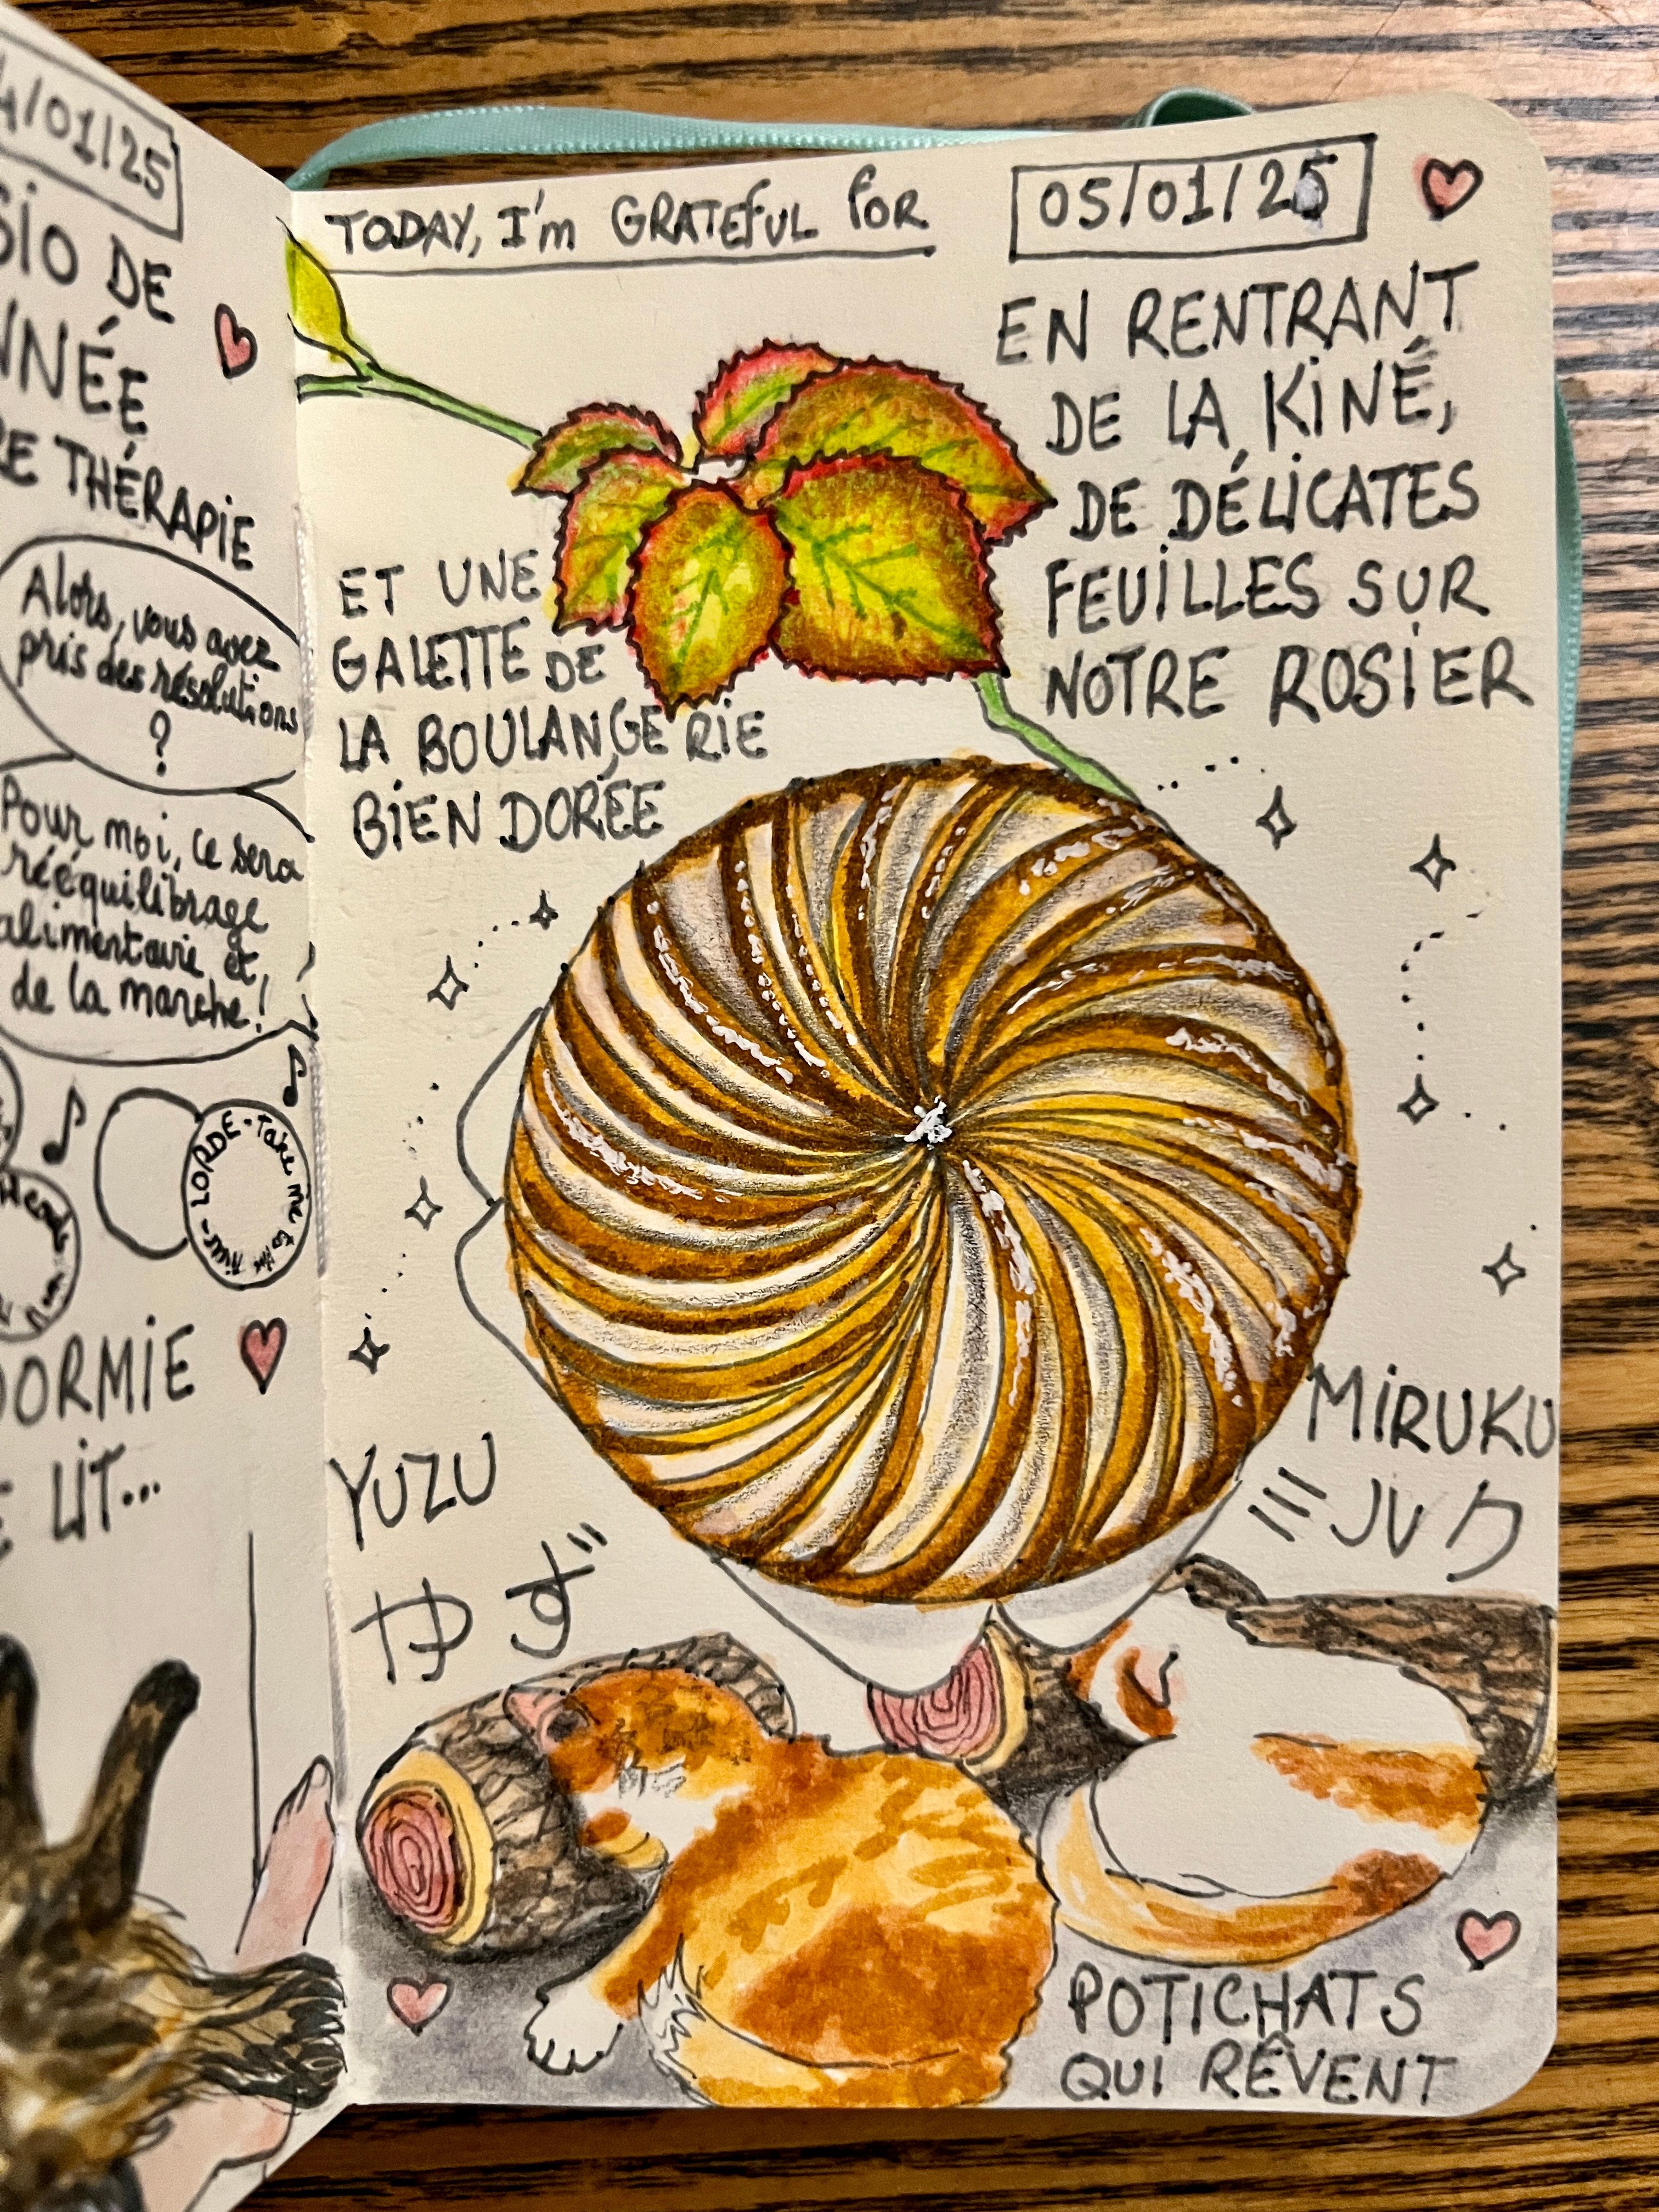 4/01/25
SIO DE
NNÉE
RE THÉRAPIE
Alors, vous avez
pris des résolutions
?
Pour moi, ce sera
rééquilibrage
alimentaire et
de la marche!
LORDE - Take me to the
DORMIE
LIT...
TODAY, I'm GRATEFUL FOR
05/01/25
EN RENTRANT
DE LA KINÉ,
DE DÉLICATES
FEUILLES SUR
NOTRE ROSIER
ET UNE
GALETTE DE
LA BOULANGERIE
BIEN DORÉE
YUZU
ゆず
MIRUKU
ミルク
POTICHATS
QUI RÊVENT